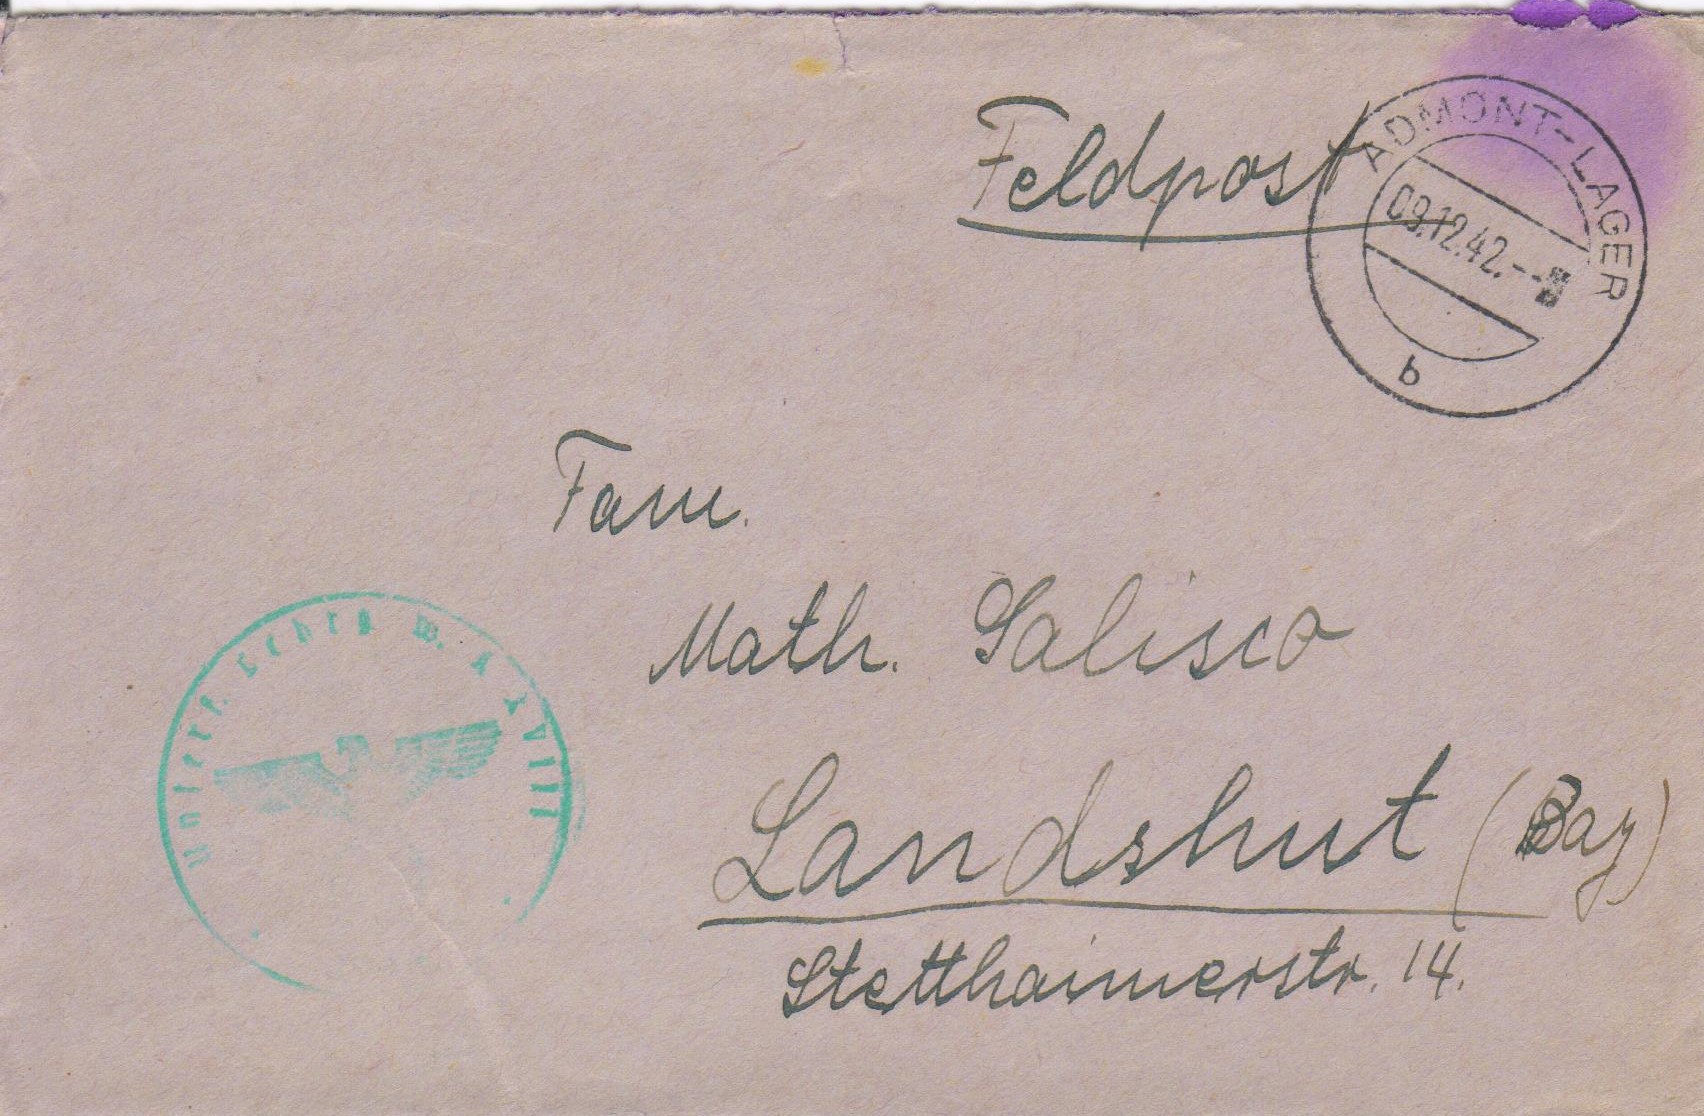 Feldpost
ADMONT-LAGER
09.12.42.--
b
Fam.
Math. Salisco
Landshut (Bay)
Stetthaimerstr. 14.
Unterf. Lehrg W. K XVIII